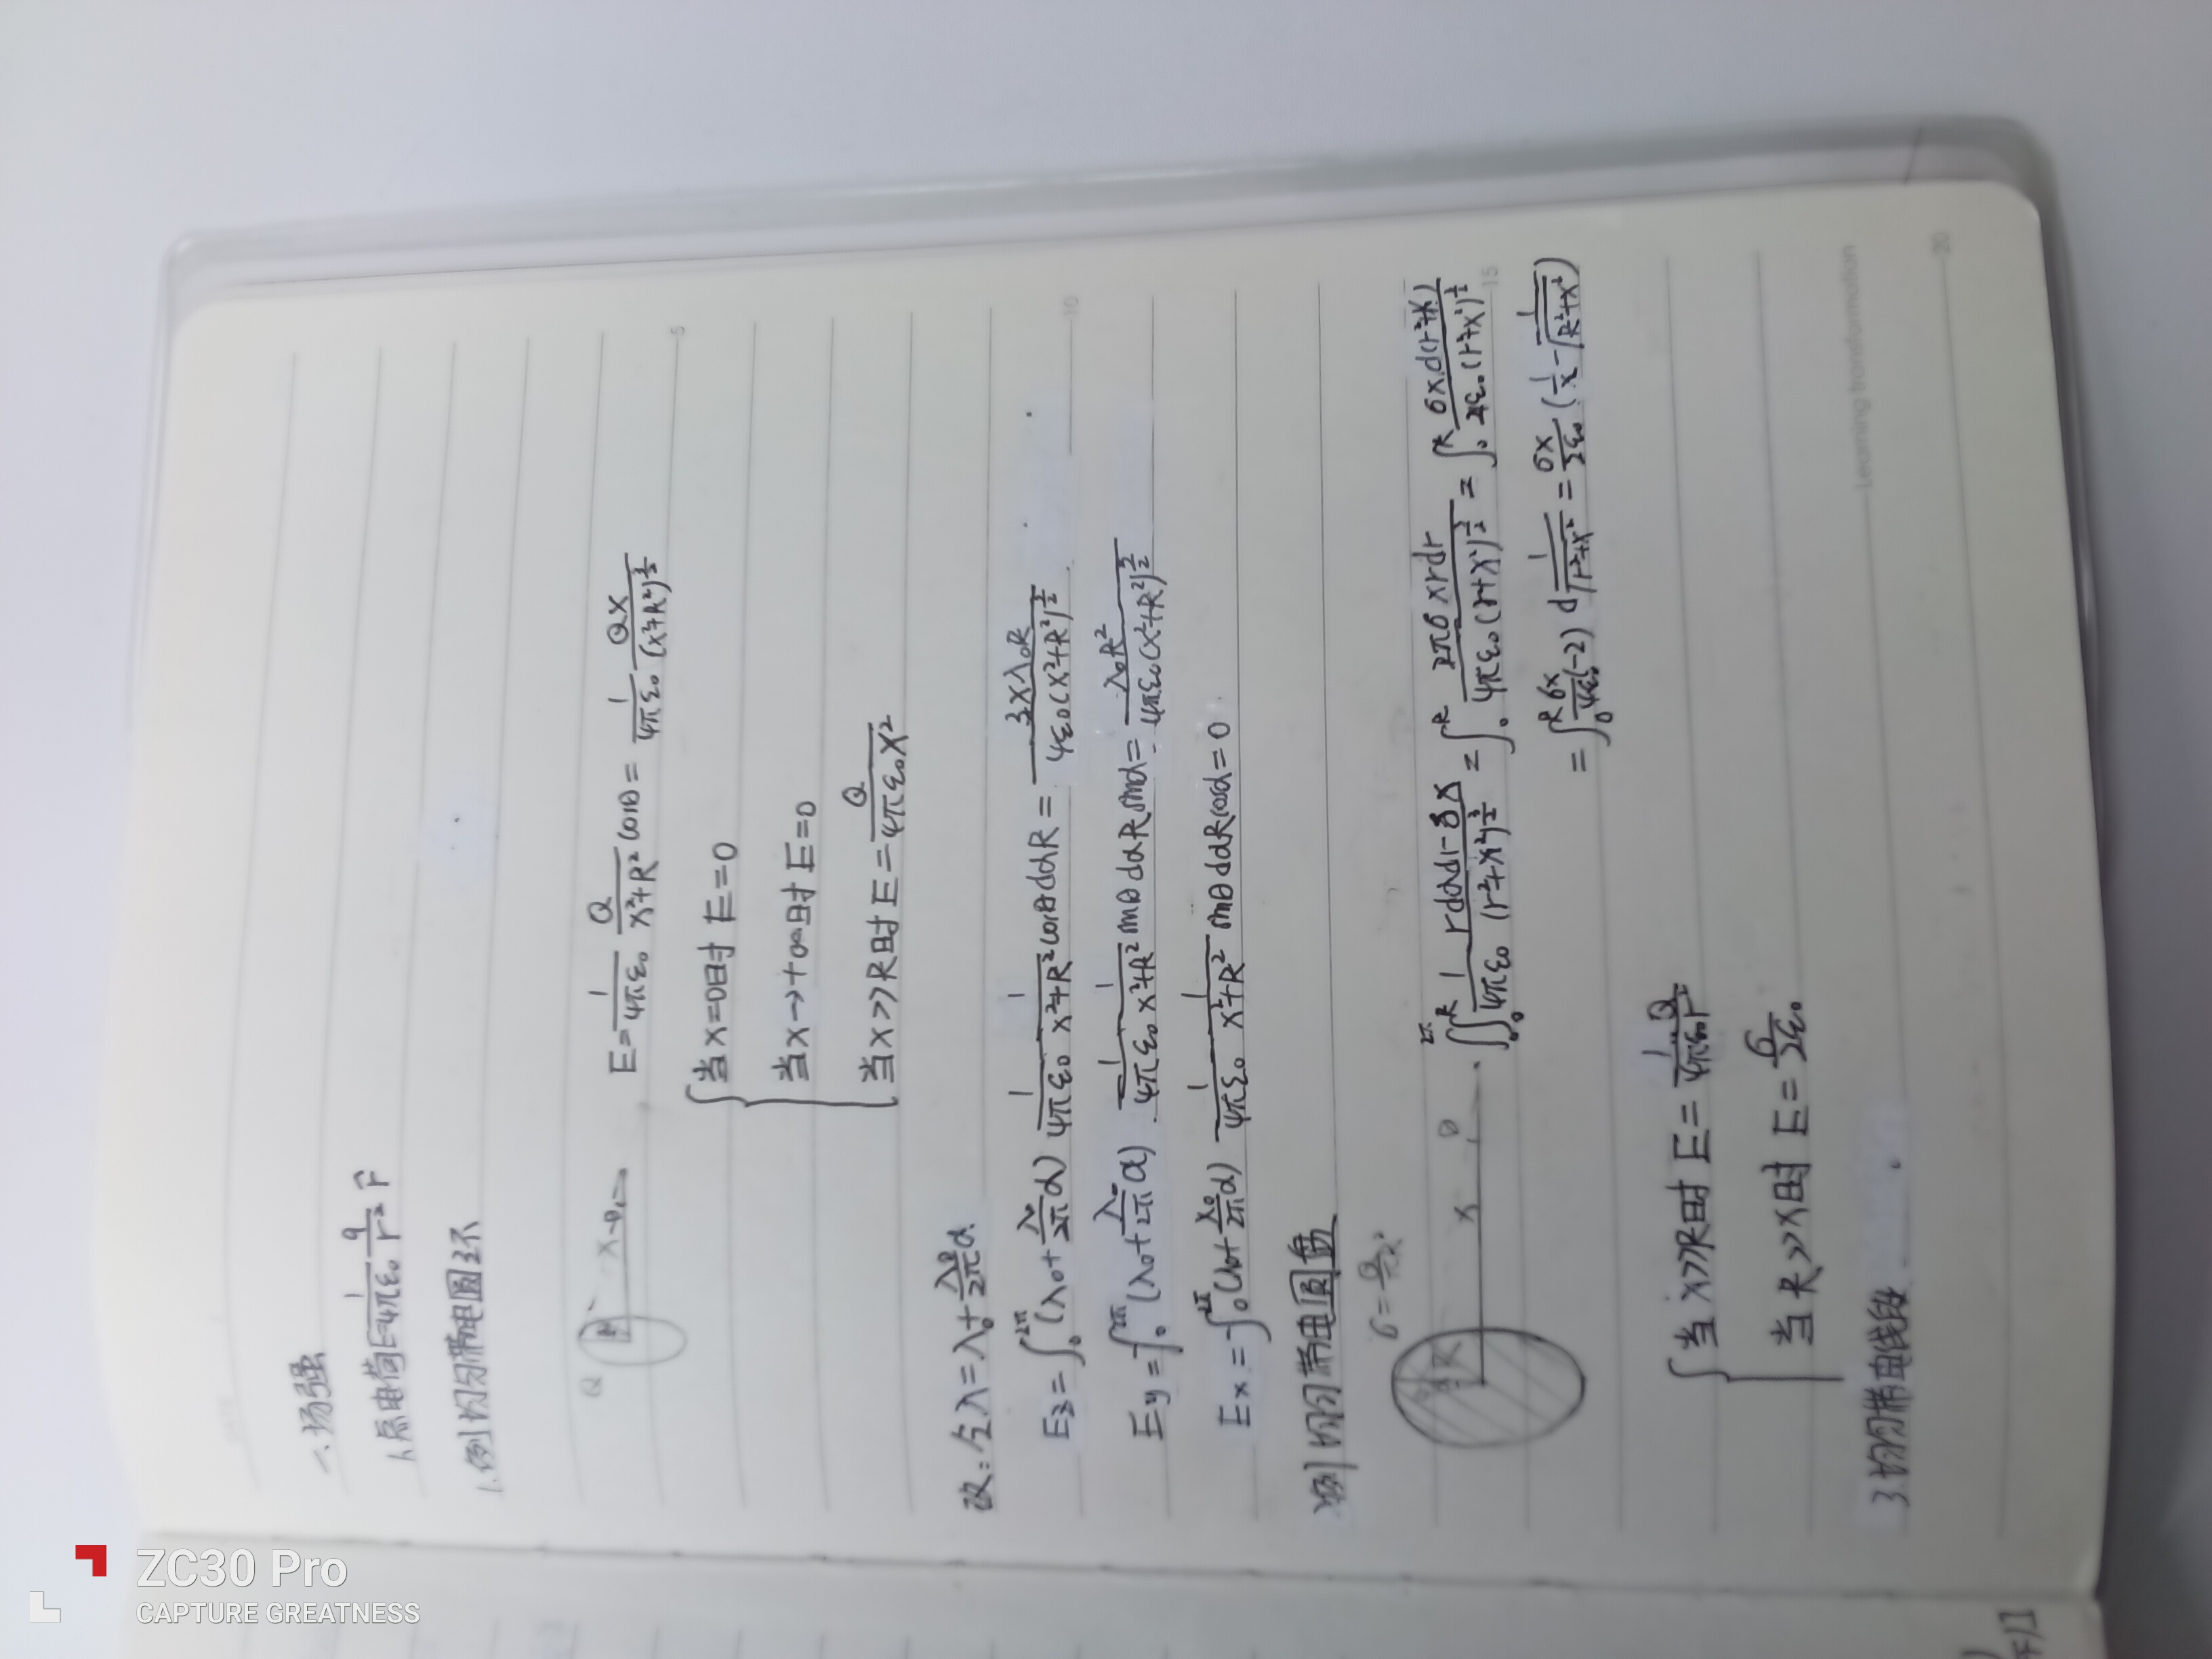 一、场强
1.点电荷E=\frac{1}{4πε₀}\frac{q}{r²} r̂
1.例 均匀带电圆环
Q R x θ
E=\frac{1}{4πε₀}\frac{Q}{x²+R²}cosθ=\frac{1}{4πε₀}\frac{Qx}{(x²+R²)^{\frac{3}{2}}}
当x=0时 E=0
当x→+∞时 E=0
当x>>R时 E=\frac{Q}{4πε₀x²}
改:令λ=λ₀+\frac{λ₀}{2π}α
E_z=∫_0^{2π}(λ₀+\frac{λ₀}{2π}α)\frac{1}{4πε₀}\frac{1}{x²+R²}cosθdαR=\frac{3xλ₀R}{4ε₀(x²+R²)^{\frac{3}{2}}}
E_y=∫_0^{2π}(λ₀+\frac{λ₀}{2π}α)\frac{1}{4πε₀}\frac{1}{x²+R²}sinθdαRsinα=\frac{λ₀R²}{4πε₀(x²+R²)^{\frac{3}{2}}}
E_x=∫_0^{2π}(λ₀+\frac{λ₀}{2π}α)\frac{1}{4πε₀}\frac{1}{x²+R²}sinθdαRcosα=0
2.例 均匀带电圆盘
R x
∫_0^{2π}∫_0^R\frac{1}{4πε₀}\frac{rdαdr·δx}{(r²+x²)^{\frac{3}{2}}}=∫_0^R\frac{2πδxrdr}{4πε₀(r²+x²)^{\frac{3}{2}}}=∫_0^R\frac{δxd(r²+x²)}{4ε₀(r²+x²)^{\frac{3}{2}}}
=∫_0^R\frac{δx}{4ε₀}(-2)d\frac{1}{\sqrt{r²+x²}}=\frac{δx}{2ε₀}(\frac{1}{x}-\frac{1}{\sqrt{R²+x²}})
当x>>R时 E=\frac{1}{4πε₀}\frac{Q}{r²}
当R>>x时 E=\frac{δ}{2ε₀}
3.均匀带电线段
5
10
15
20
Learning transformation
ZC30 Pro
CAPTURE GREATNESS